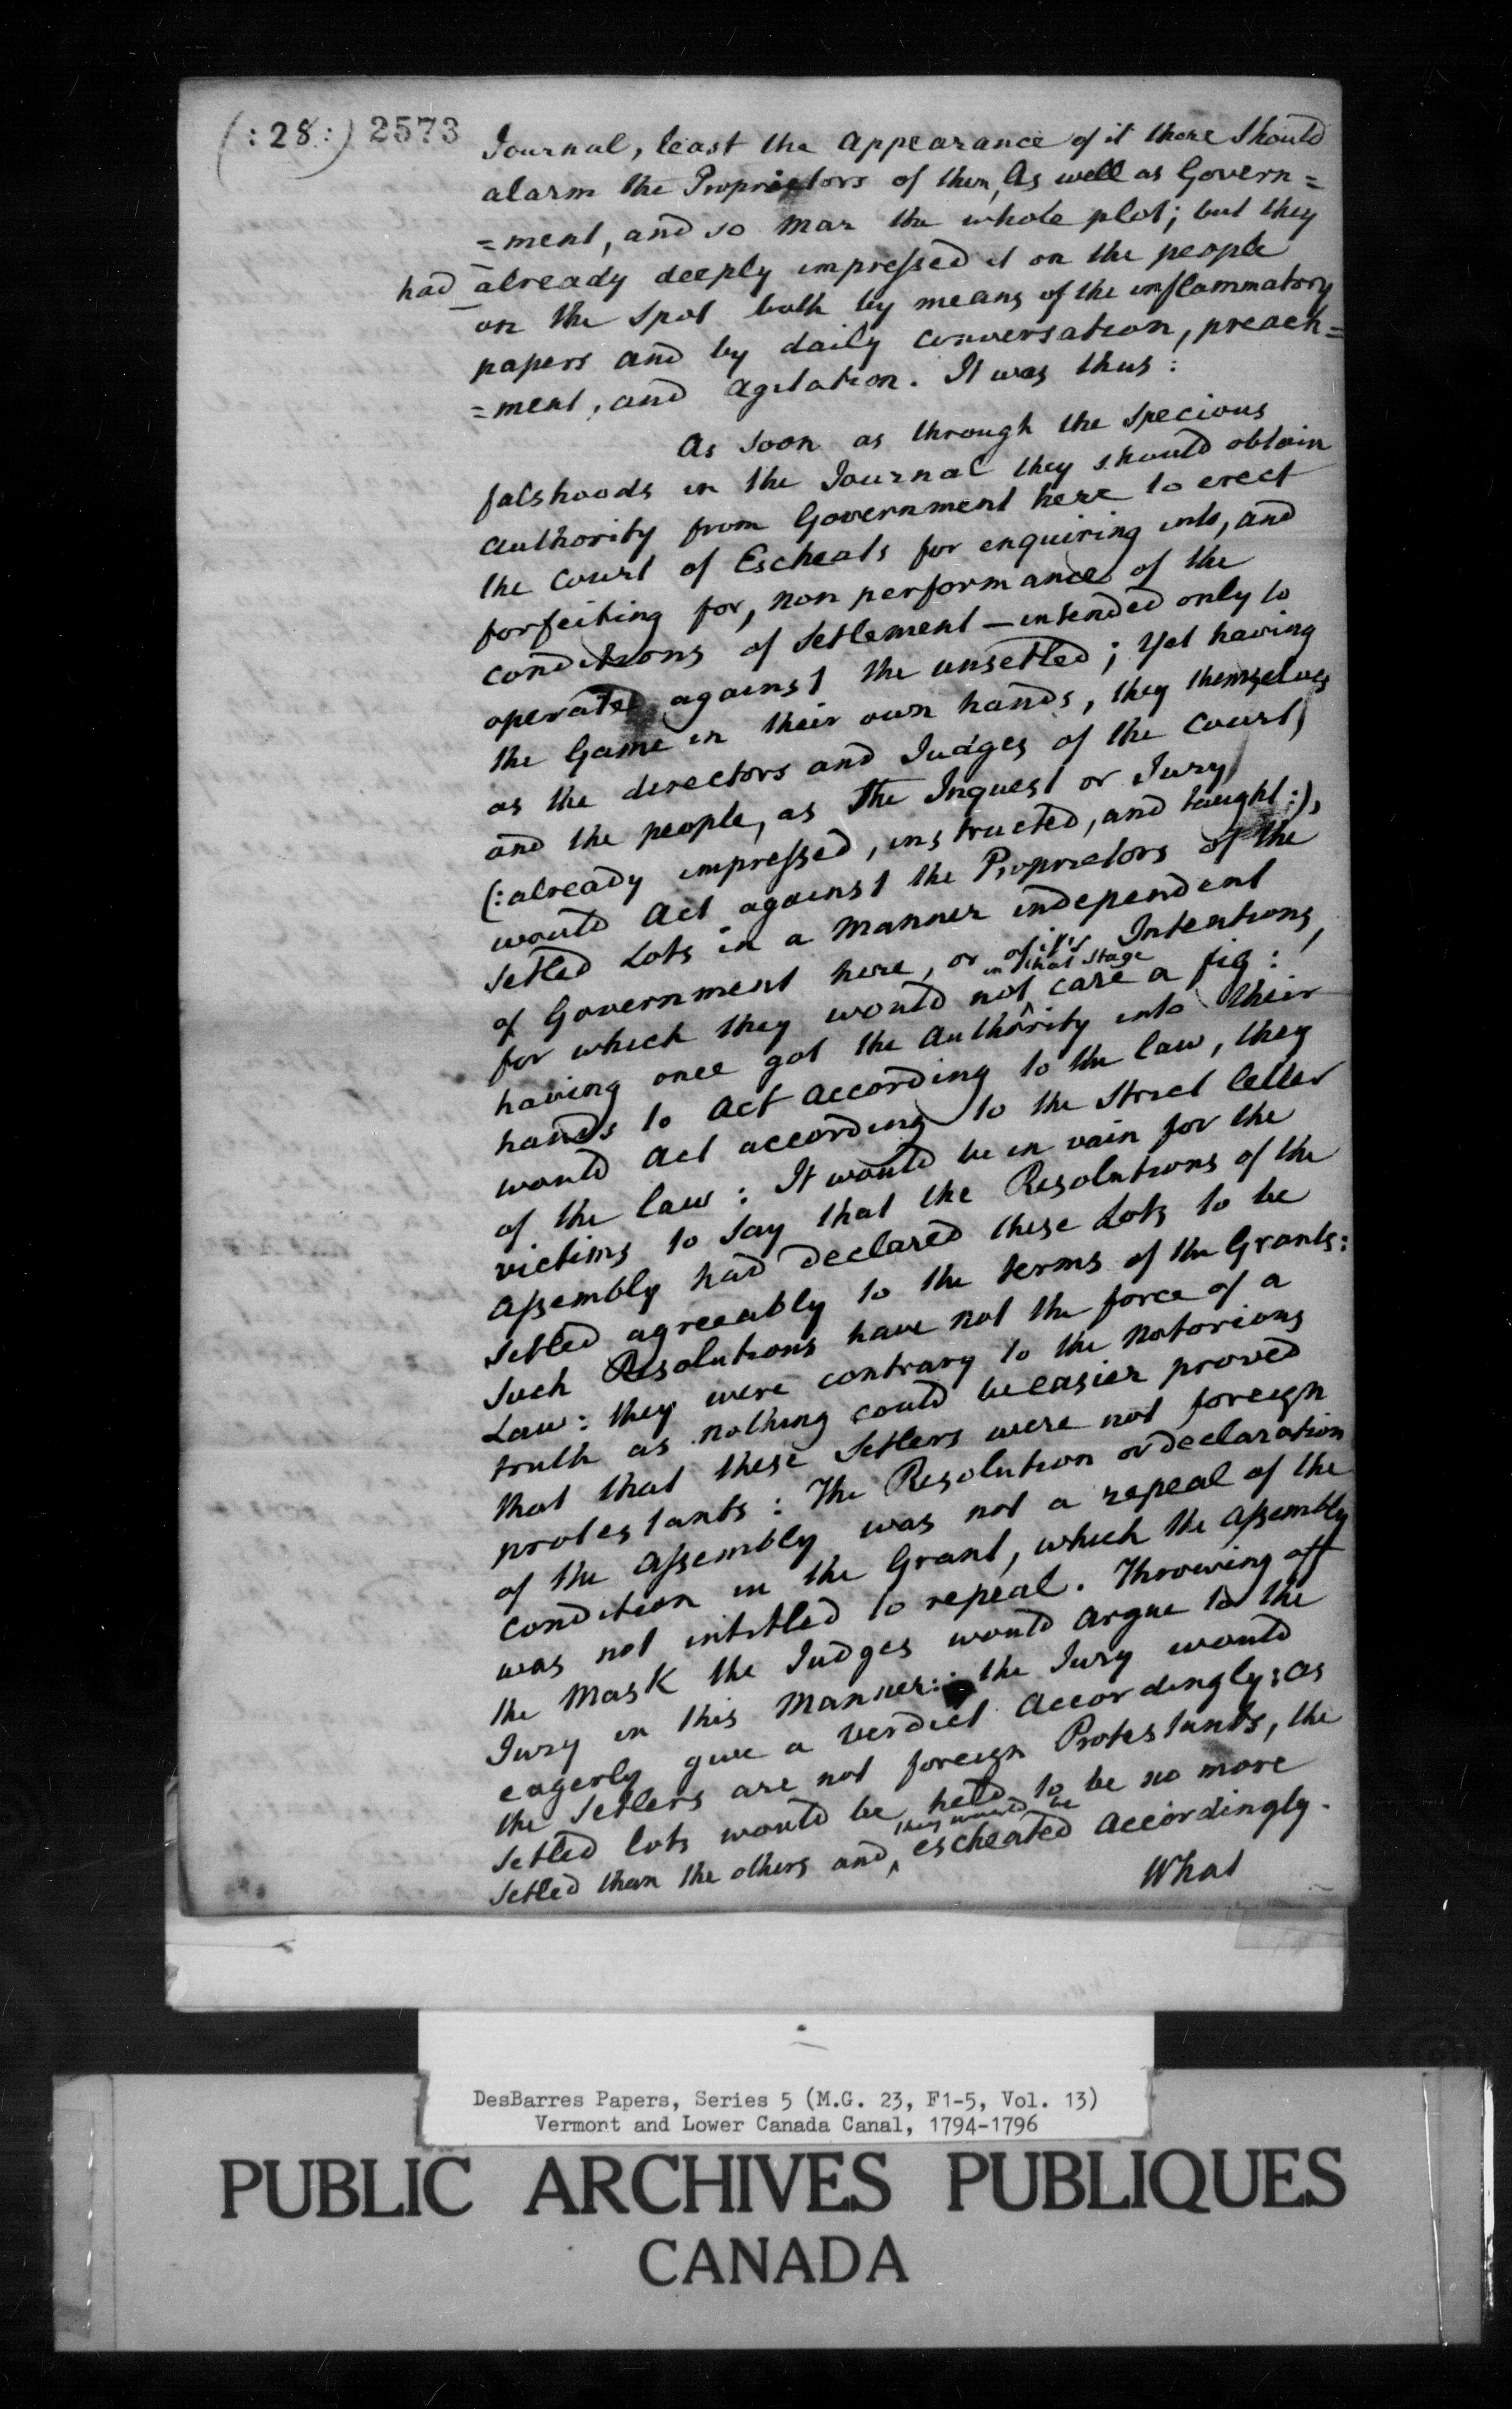 (:28:) 2573
Journal, least the Appearance of it there Should
alarm the Proprietors of them, As well as Govern=
=ment, and so mar the whole plot; but they
had already deeply impressed it on the people
on the Spot both by means of the inflammatory
papers and by daily conversation, preach=
=ment, and agitation. It was thus:
As soon as through the Specious
falshoods in the Journal they should obtain
authority from Government here to erect
the Court of Escheats for enquiring into, and
forfeiting for, non performance of the
conditions of Setlement – intended only to
operate against the unsetled; Yet having
the Game in their own hands, they themselves
as the directors and Judges of the Court,
and the people, as The Inquest or Jury
(:already impressed, instructed, and taught:),
would Act against the Proprietors of the
Setled Lots in a Manner independent
of Government here, or of it's Intentions,
in that Stage
for which they would not, care a fig:
having once got the Authority into their
hands to Act According to the law, they
would Act according to the Strict letter
of the law: It would be in vain for the
victims to Say that the Resolutions of the
Assembly had declared these Lots to be
Setled agreeably to the terms of the Grants:
Such Resolutions have not the force of a
Law: they were contrary to the Notorious
truth as nothing could be easier proved
that that these Setlers were not foreign
protestants: The Resolution or declaration
of the Assembly was not a repeal of the
condition in the Grant, which the Assembly
was not intitled to repeal. Throwing off
the Mask the Judges would Argue to the
Jury in this Manner: the Jury would
eagerly give a verdict Accordingly; as
the Setlers are not foreign Protestants, the
Setled lots would be held to be no more
they would be
Setled than the others and, escheated Accordingly.
What
DesBarres Papers, Series 5 (M.G. 23, F1-5, Vol. 13)
Vermont and Lower Canada Canal, 1794-1796
PUBLIC ARCHIVES PUBLIQUES
CANADA